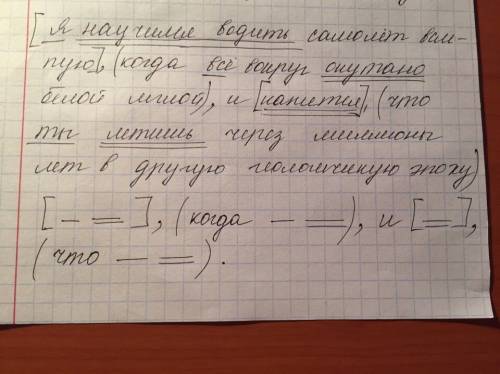 [я научился водить самолёт всле-
пую], (когда всё вокруг окутано
белой мглой), и [кажется], (что
ты летишь через миллионы
лет в другую геологическую эпоху)
[– =], (когда – =), и [=],
(что – =).